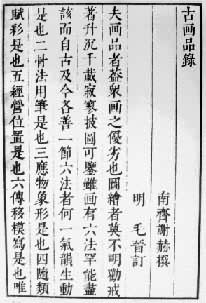 古画品錄
南齊謝赫撰
明毛晉訂
夫画品者葢衆画之優劣也圖繪者莫不明勸戒
著升沉千載寂寥披圖可鑒雖画有六法罕能盡
該而自古及今各善一節六法者何一氣韻生動
是也二骨法用筆是也三應物象形是也四隨類
賦彩是也五經營位置是也六傳移模寫是也唯